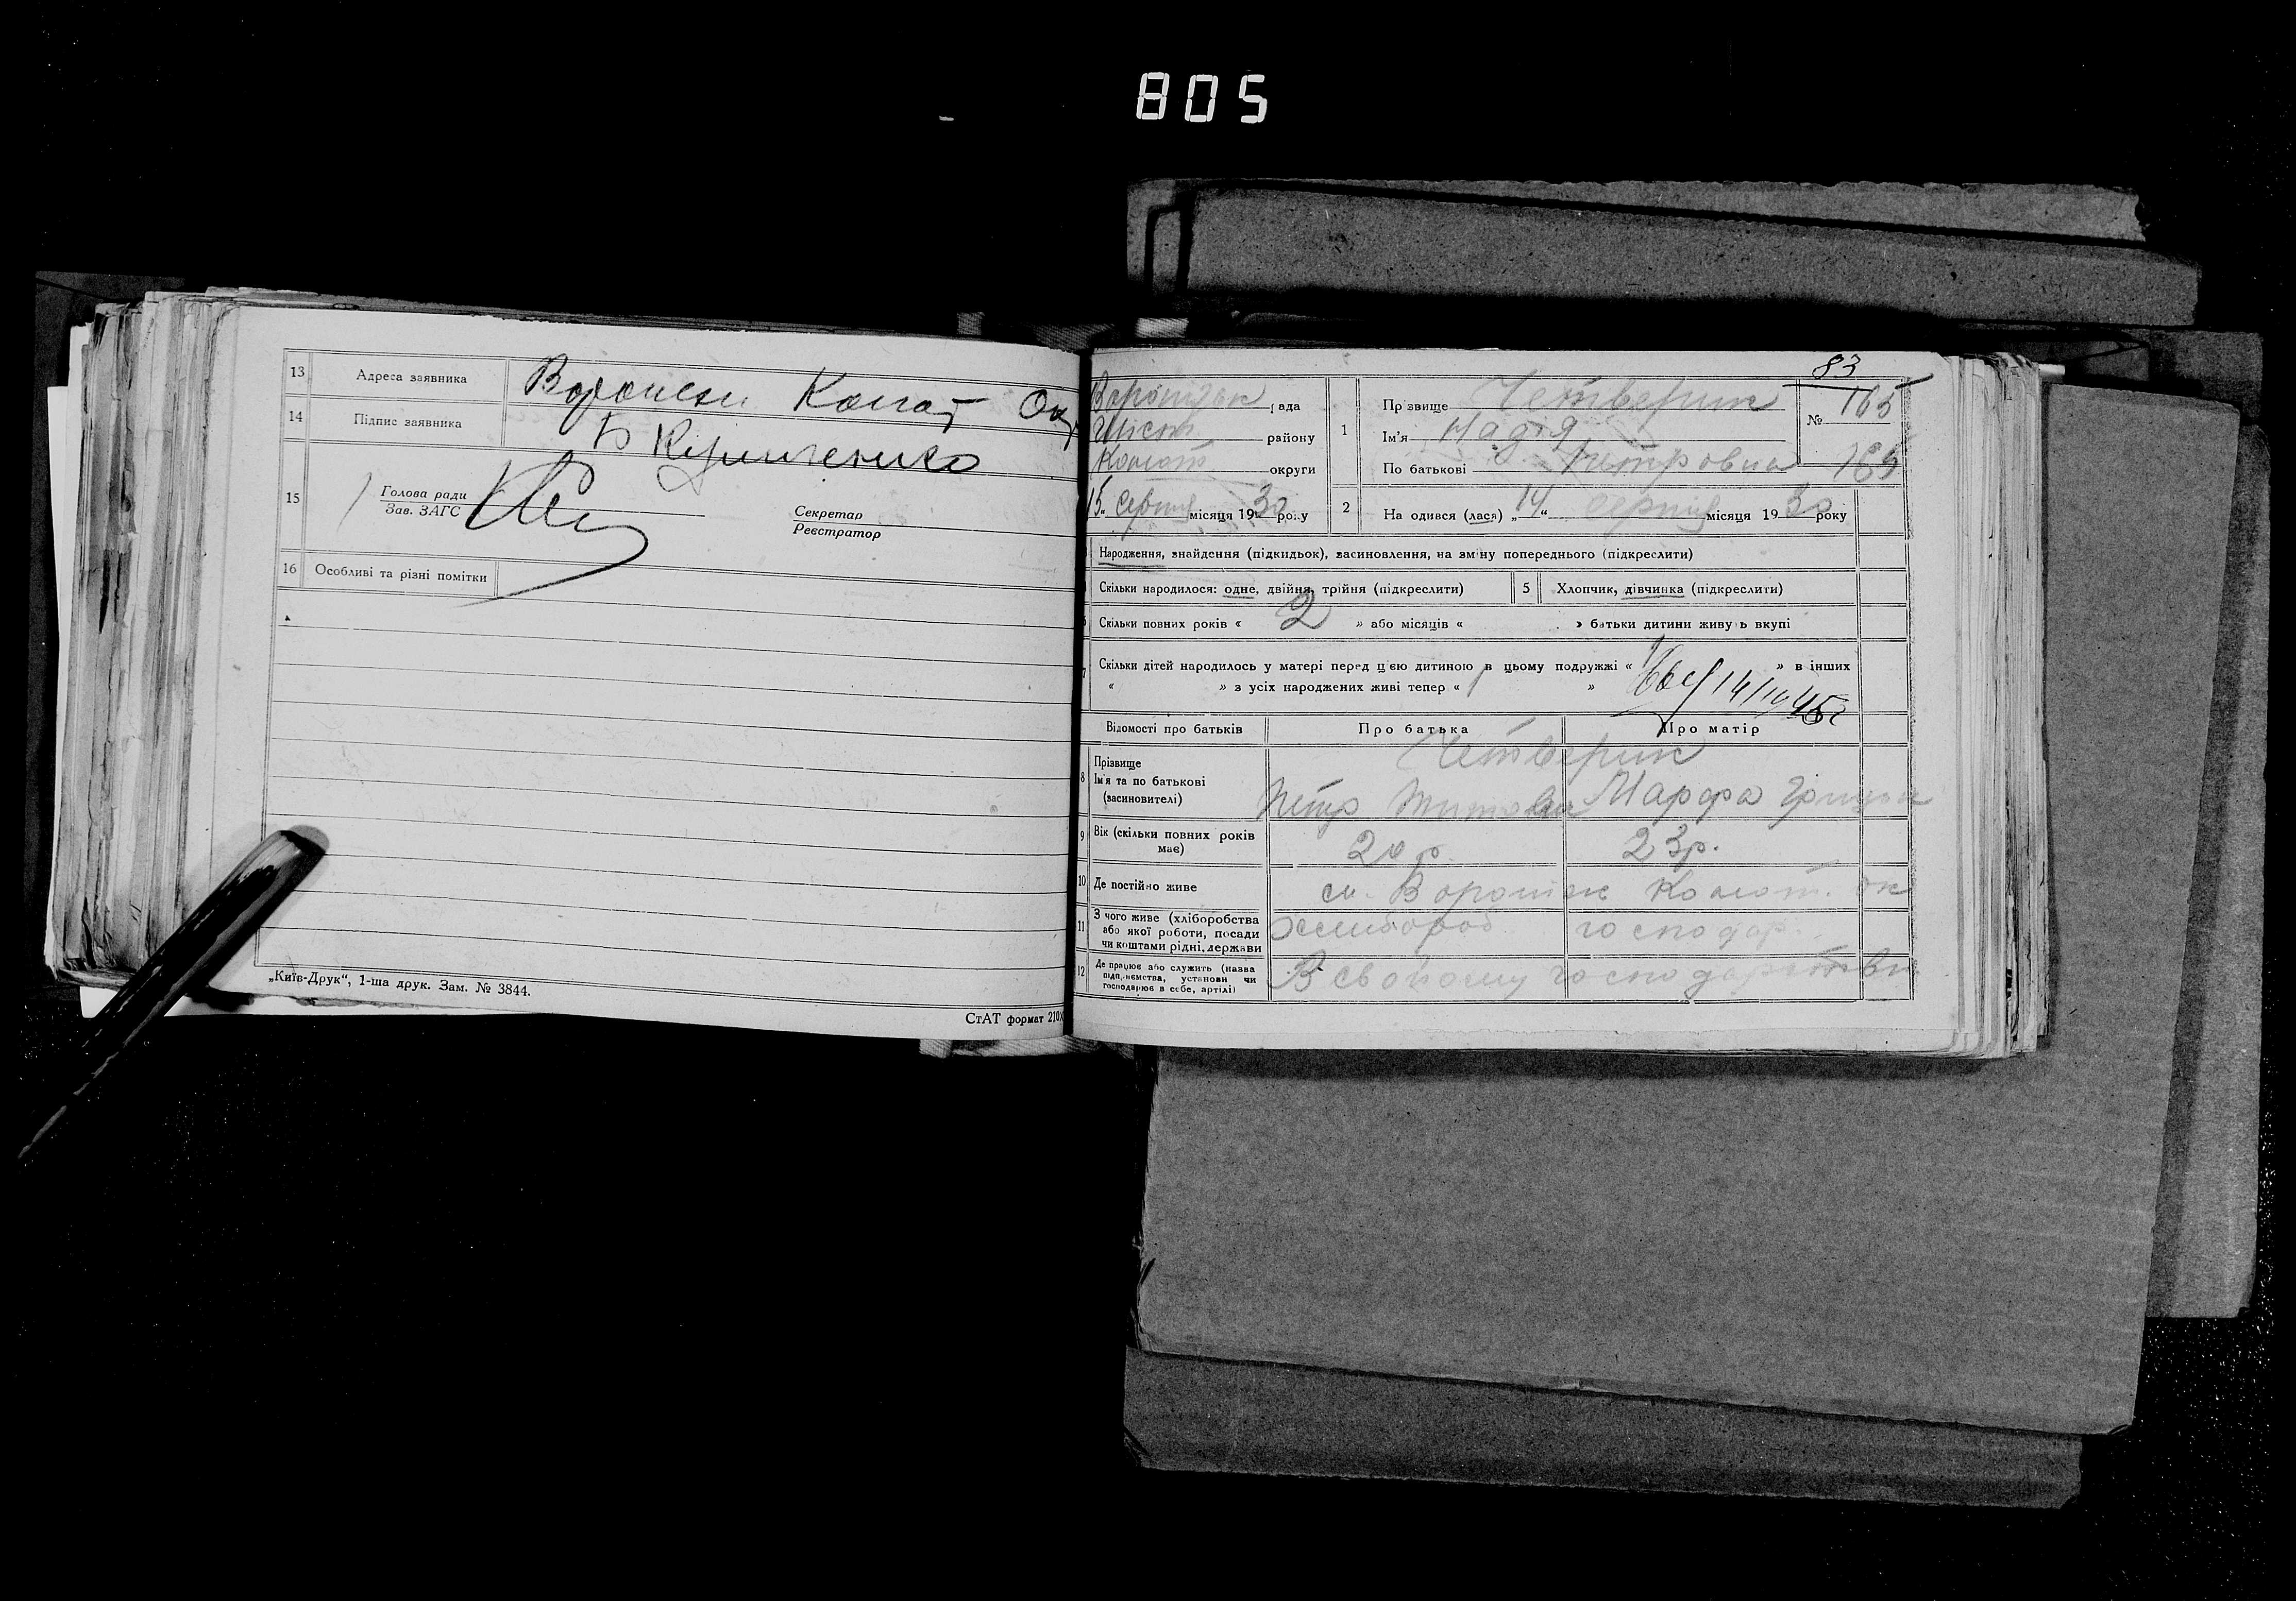 805
13 Адреса заявника Воронеж Коност Ок
14 Підпис заявника
15 Голова ради
Зав. ЗАГС
Секретар
Реєстратор
16 Особливі та різні помітки
„Київ-Друк“, 1-ша друк. Зам. № 3844.
СтАТ формат 210
83
рада
району
округи
15 серпня місяця 1930 року
1 Прізвище Четверик
Ім'я Надія
По батькові Петровна
№ 165
165
2 Народився (лася) „14“ серпня місяця 1930 року
Народження, знайдення (підкидьок), засиновлення, на зміну попереднього (підкреслити)
Скільки народилося: одне, двійня, трійня (підкреслити)
5 Хлопчик, дівчинка (підкреслити)
Скільки повних років « 2 » або місяців « » батьки дитини живуть вкупі
7 Скільки дітей народилось у матері перед цією дитиною в цьому подружжі « » в інших
« » з усіх народжених живі тепер « »
Відомості про батьків Про батька Про матір
8 Прізвище
Ім'я та по батькові
(засиновителі)
Четверик
Петр Марфа
9 Вік (скільки повних років
має)
20 р. 23 р.
10 Де постійно живе
11 З чого живе (хліборобства
або якої роботи, посади
чи коштами рідні, держави
Хлибороб господар.
12 Де працює або служить (назва
підприємства, установи чи
господарює в себе, артілі)
В свойому господарстви